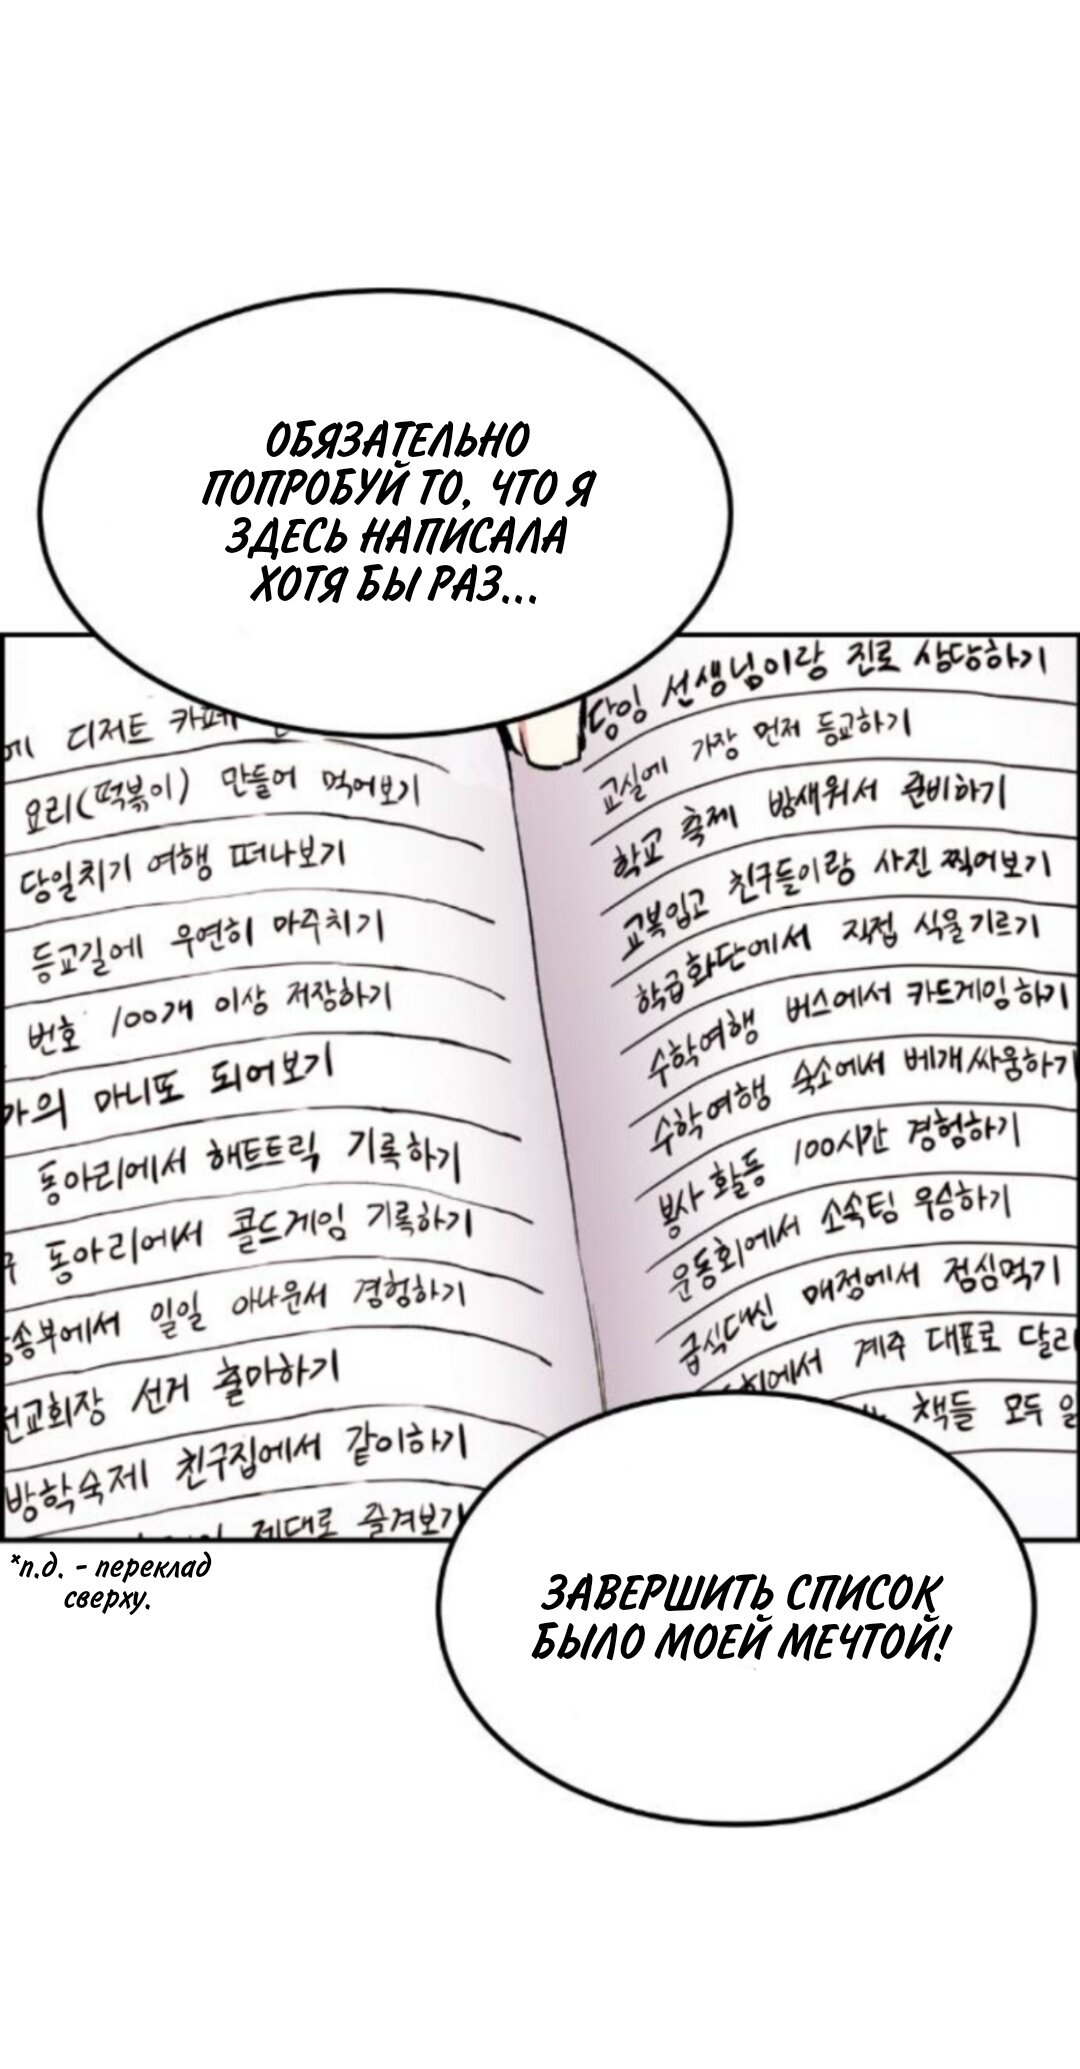 ОБЯЗАТЕЛЬНО
ПОПРОБУЙ ТО, ЧТО Я
ЗДЕСЬ НАПИСАЛА
ХОТЯ БЫ РАЗ...
에 디저트 카페
요리(떡볶이) 만들어 먹어보기
당일치기 여행 떠나보기
등교길에 우연히 마주치기
번호 100개 이상 저장하기
마니또 되어보기
동아리에서 해트트릭 기록하기
동아리에서 콜드게임 기록하기
송부에서 일일 아나운서 경험하기
교회장 선거 출마하기
방학숙제 친구집에서 같이하기
제대로 즐겨보기
담임 선생님이랑 진로 상담하기
교실에 가장 먼저 등교하기
학교 축제 밤새워서 준비하기
교복입고 친구들이랑 사진 찍어보기
학급화단에서 직접 식물기르기
수학여행 버스에서 카드게임하기
수학여행 숙소에서 베개싸움하기
봉사 활동 100시간 경험하기
운동회에서 소속팀 우승하기
급식대신 매점에서 점심먹기
에서 계주 대표로 달리
책들 모두
*п.д. - переклад
сверху.
ЗАВЕРШИТЬ СПИСОК
БЫЛО МОЕЙ МЕЧТОЙ!